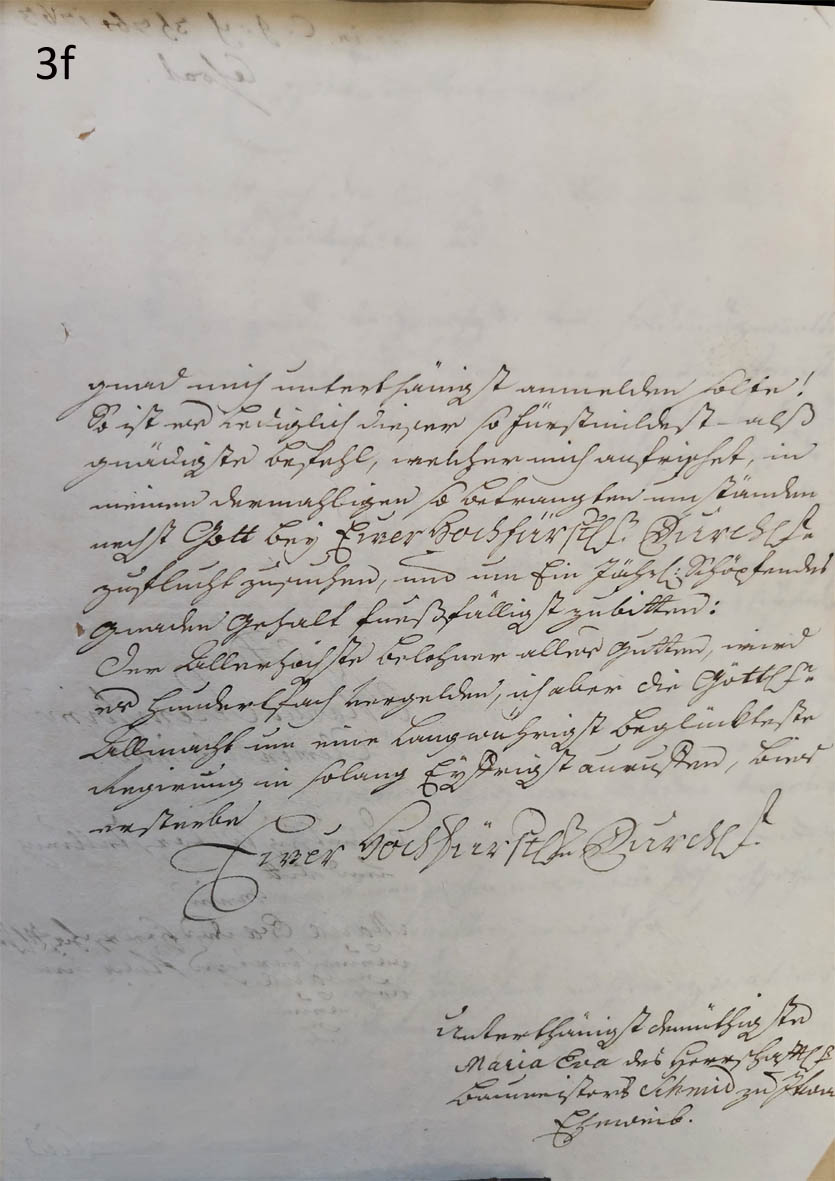 3f
gnad mich unterthänigst anmelden solte!
So ist es Lediglich dieser so fürstmildest- alß
gnädigste befehl, welcher mich aufrichtet, in
meinen dermahligen so betrangten umständen
nechst Gott bey Ewer Hochfürstl: Durchl:
zuflucht zusuchen, und um Ein Jährl: Schöpfendes
gnaden Gehalt fueßfälligst zubitten:
Der Allerhöchste belohner alles gutten, wird
es hundertfach vergelden, ich aber die Göttl:
Allmacht um eine Langwührigst beglückteste
Regirung in solang Eyffrigst anruffen, biß
ersterbe
Ewer Hochfürstl: Durchl:
Unterthänigst demüthigste
Maria Eva des Herrschafftl:
Baumeisters Schmid zu
Eheweib.